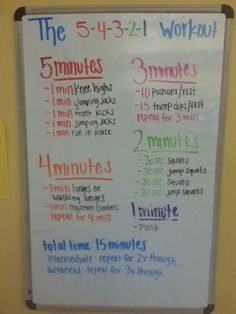 The 5-4-3-2-1 Workout
5 minutes
-1 min knee highs
-1 min Jumping Jacks
-1 min front kicks
-1 min jumping jacks
-1 min run in place
4 minutes
-1 min lunges or
walking lunges
-1 min mountain climbers
repeat for 4 min
3 minutes
-10 pushups/rest
-15 tricep dips/rest
repeat for 3 min
2 minutes
-30 sec squats
-30 sec jump squats
-30 sec squats
-30 sec jump squats
1 minute
-Plank
total time: 15 minutes
intermediate: repeat for 2x through
advanced: repeat for 3x through